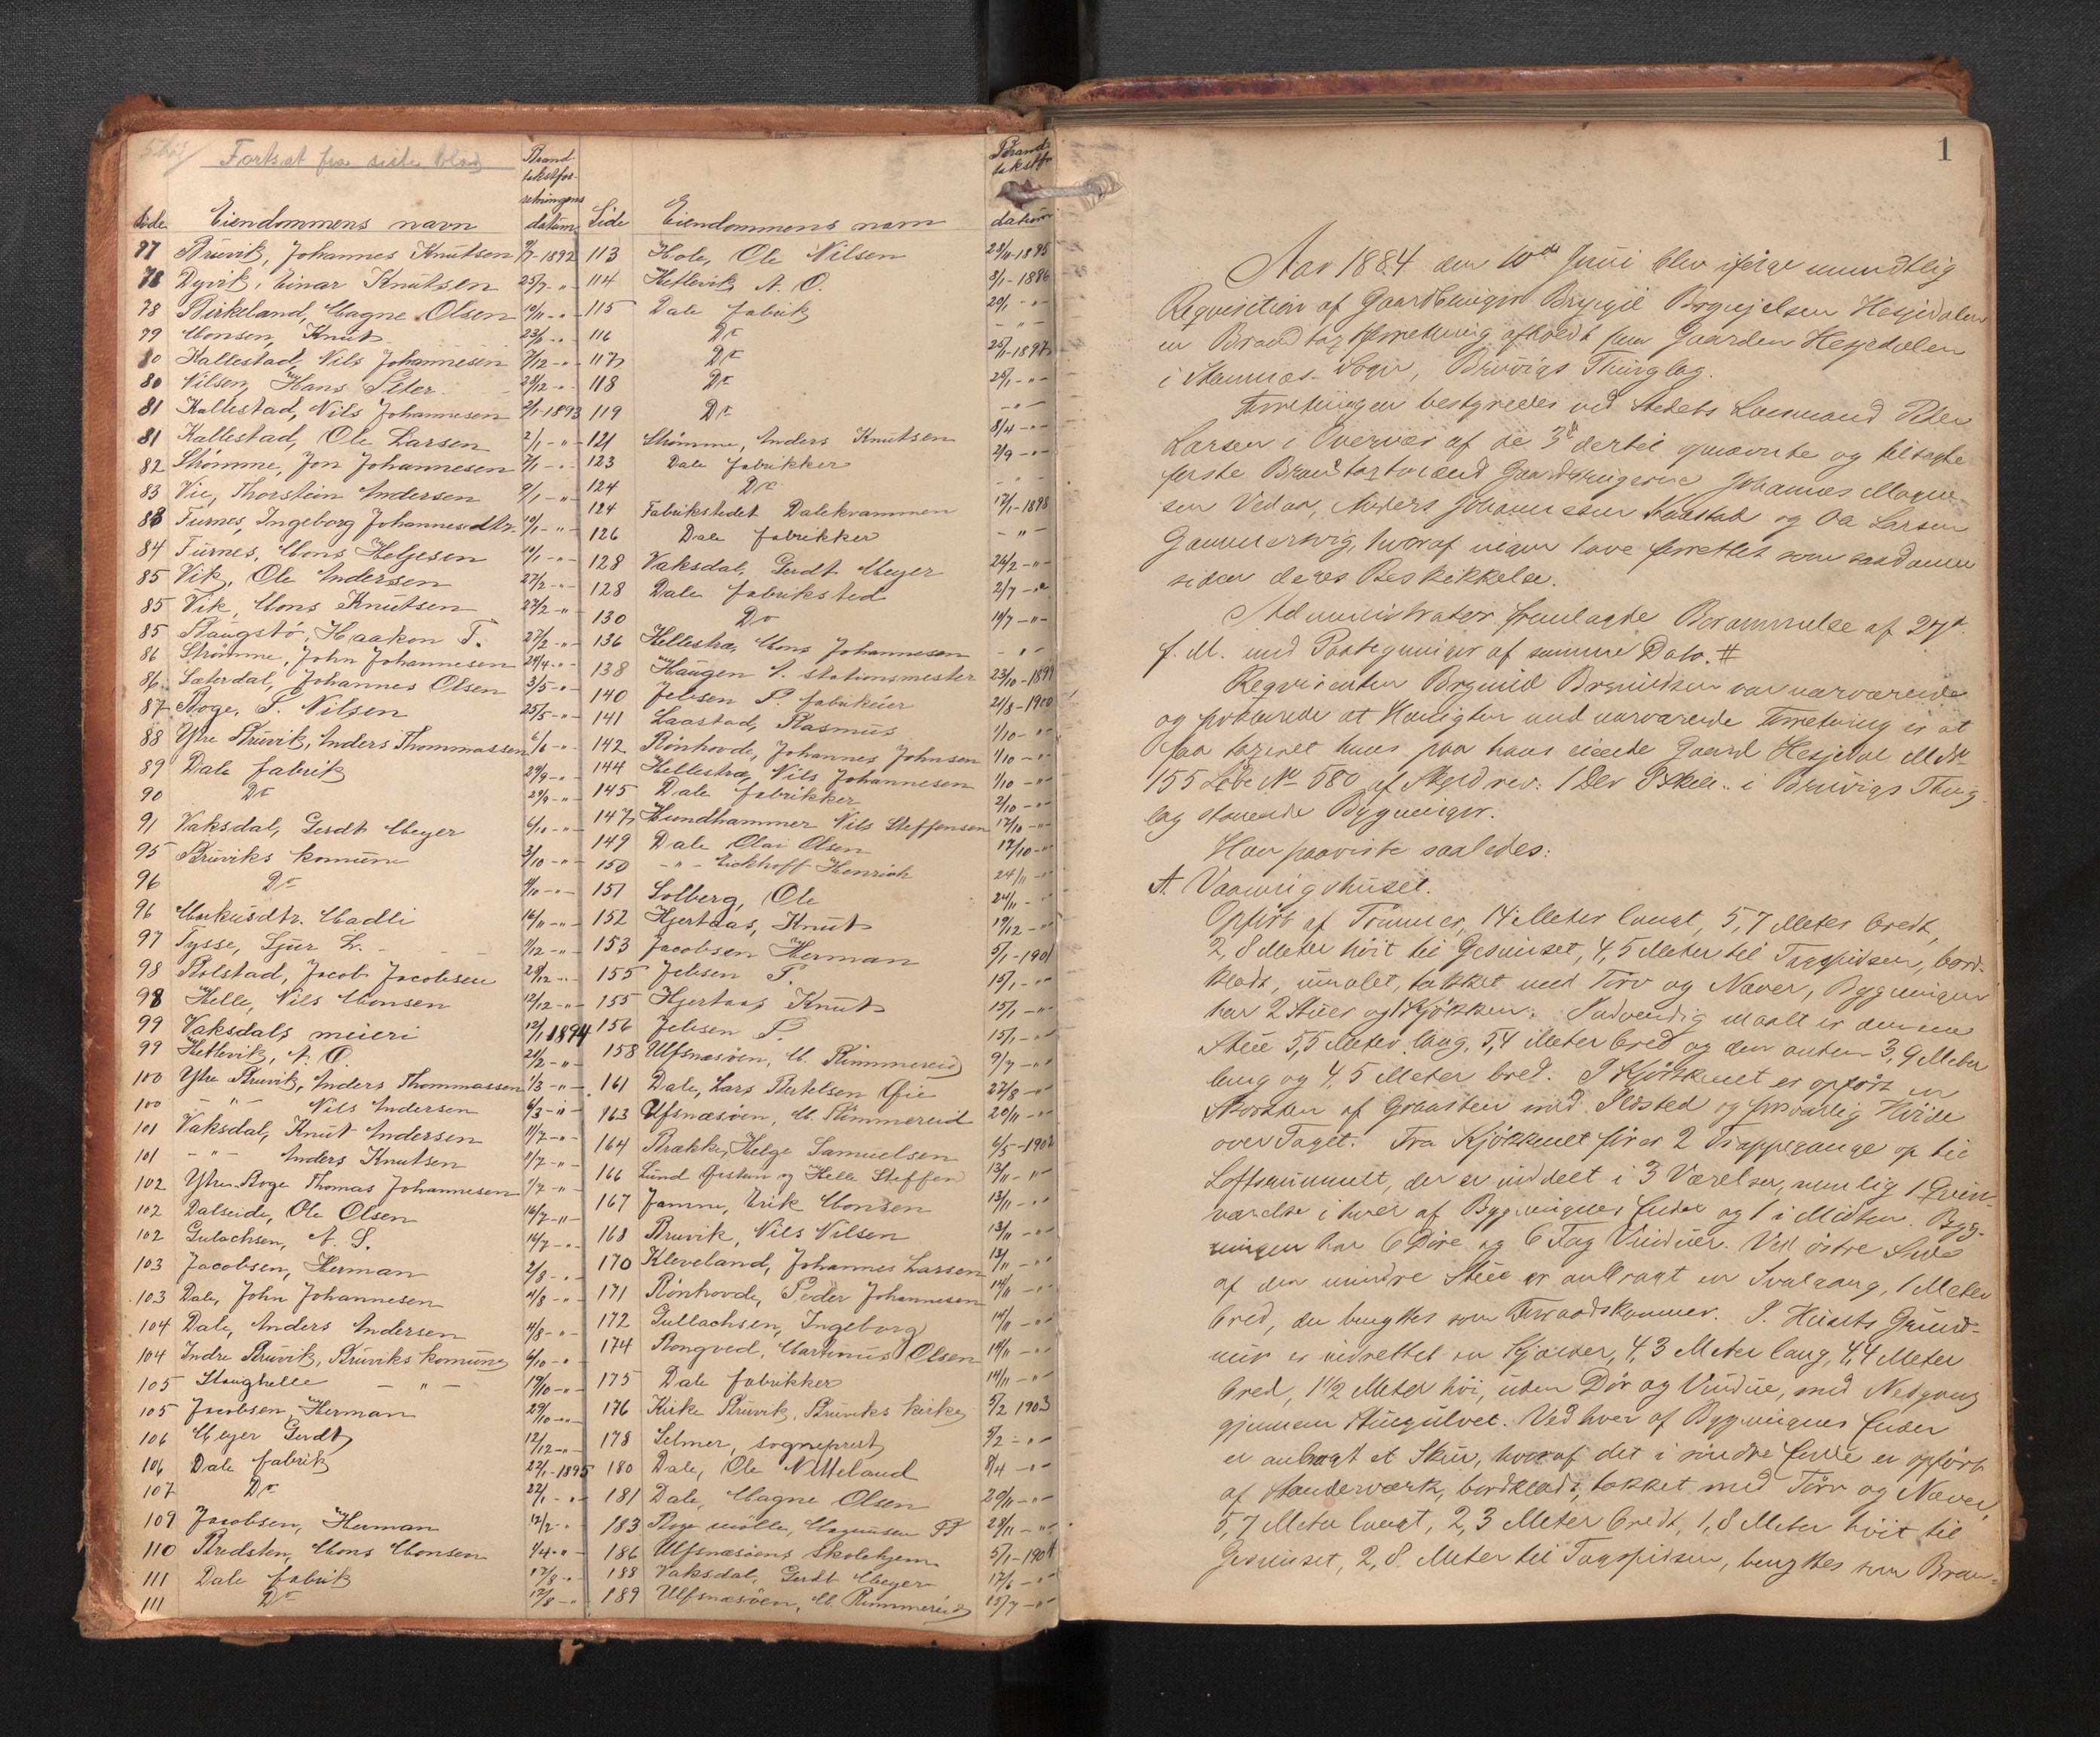 Fortsat fra siste blad
Side Eiendommens navn Brandtakstforretningens datum
77 Bruvik, Johannes Knutsen 9/7-1892
78 Dyvik, Einar Knutsen 25/7 - " -
78 Birkeland, Magne Olsen 10/11 - " -
79 Monsen, Knut 23/6 - " -
80 Kallestad, Nils Johannesen 7/12 - " -
80 Nilsen, Hans Peter 28/12 - " -
81 Kallestad, Nils Johannesen 2/1-1893
81 Kallestad, Ole Larsen 2/1 - " -
82 Strømme, Jon Johannesen 7/1 - " -
83 Vie, Thorstein Andersen 9/1 - " -
83 Turnes, Ingeborg Johannesdtr. 10/1 - " -
84 Turnes, Mons Helgesen 10/1 - " -
85 Vik, Ole Andersen 27/2 - " -
85 Vik, Mons Knutsen 27/2 - " -
85 Baugstø, Haakon T. 27/2 - " -
86 Strømme, John Johannesen 24/4 - " -
86 Sæterdal, Johannes Olsen 3/5 - " -
87 Boge, P. Nilsen 25/5 - " -
88 Ytre Bruvik, Anders Thommassen 6/6 - " -
89 Dale fabrik 29/9 - " -
90 Do 29/9 - " -
91 Vaksdal, Gerdt Meyer 6/10 - " -
95 Bruviks komune 3/10 - " -
96 Do
96 Markusdtr. Madli 16/11 - " -
97 Tysse, Sjur L.
98 Bolstad, Jacob Jacobsen 28/12 - " -
98 Helle, Nils Monsen 12/12 - " -
99 Vaksdals meieri 12/1 1894
99 Hetlevik, A. O. 21/2 - " -
100 Ytre Bruvik, Anders Thommassen 1/3 - " -
100 - " - Nils Andersen 6/3 - " -
101 Vaksdal, Knut Andersen 11/7 - " -
101 - " - Anders Knutsen 11/7 - " -
102 Ytre Boge Thomas Johannesen
102 Dalseide, Ole Olsen 16/7 - " -
102 Gulachsen, A. S. 16/7 - " -
103 Jacobsen, Herman 2/8 - " -
103 Dale, John Johannesen 4/8 - " -
104 Dale, Anders Andersen 4/8 - " -
104 Indre Bruvik, Bruviks komune 6/10 - " -
105 Stanghelle - " - 19/10 - " -
105 Jacobsen, Herman 29/10 - " -
106 Meyer Gerdt 12/12 - " -
106 Dale fabrik 22/1-1895
107 Do 22/1 - " -
109 Jacobsen, Herman 12/2 - " -
110 Bredsten, Mons Monsen 1/4 - " -
111 Dale fabrik 12/8 - " -
111 Do 12/8 - " -
Side Eiendommens navn Brandtakstfor datum
113 Hole, Ole Nilsen 28/11-1895
114 Hetlevik A. O. 8/1-1896
115 Dale fabrik 20/1 - " -
116 Do - " -
117 Do 25/1-1897
118 Do 25/1 - " -
119 Do - " -
121 Strømme, Anders Knutsen 8/4 - " -
123 Dale fabrikker 2/9 - " -
124 Do - " -
124 Fabrikstedet Dalekvammen 17/1-1898
126 Dale fabrikker - " -
128 Vaksdal, Gerdt Meyer 26/2 - " -
128 Dale fabriksted 2/7 - " -
130 Do 19/7 - " -
136 Hellestra, Mons Johannesen - " -
138 Haugen A. stationsmester 23/10-1899
140 Jebsen P. fabrikeier 21/8-1900
141 Laastad, Rasmus 1/10 - " -
142 Rønhovde, Johannes Johnsen 1/10 - " -
144 Hellestra, Nils Johannesen 1/10 - " -
145 Dale fabrikker 2/10 - " -
147 Hundhammer Nils Steffensen 17/10 - " -
149 Dale Olai Olsen 17/10 - " -
150 - " - Eickhoff Henrich 24/11 - " -
151 Solberg, Ole 24/11 - " -
152 Hjertaas, Knut 19/12 - " -
153 Jacobsen Herman 5/1-1901
155 Jebsen P. 15/1 - " -
155 Hjertaas Knut 15/1 - " -
156 Jebsen P. 15/1 - " -
158 Ulfsnæsøen, M. Rimmereid 9/7 - " -
161 Dale, Lars Bertelsen Øie 27/8 - " -
163 Ulfsnæsøen, M. Rimmereid 20/11 - " -
164 Brække, Helge Samuelsen 6/5-1902
166 Lund Øistein og Helle Steffen 13/11 - " -
167 Jamne, Erik Monsen 13/11 - " -
168 Bruvik, Nils Nilsen 13/11 - " -
170 Kleveland, Johannes Larsen 13/11 - " -
171 Rønhovde, Peder Johannesen 14/11 - " -
172 Gullachsen, Ingeborg 14/11 - " -
174 Rongved, Martinus Olsen 14/11 - " -
175 Dale fabrikker 14/11 - " -
176 Kirke Bruvik, Bruviks kirke 5/2 1903
178 Selmer, sogneprest 5/2 - " -
180 Dale, Ole Nitteland 8/4 - " -
181 Dale, Magne Olsen 20/11 - " -
183 Boge mølle, Magnusen B 28/11 - " -
186 Ulfsnæsøens Skolehjem 5/1-1904
188 Vaksdal, Gerdt Meyer 17/6 - " -
189 Ulfsnæsøen, M. Rimmereid 15/7 - " -
1
Aar 1884 den 10de Juni blev ifølge mundtlig
Reqvisition af Gaardbruger Brynjel Brynjelsen Hesjedalen
en Brandtaxtforretning afholdt paa Gaarden Hesjedalen
i Stamnæs Sogn, Bruvigs Thinglag.
Forretningen bestyredes ved Stedets Lensmand Peder
Larsen i Overvær af de 3de dertil opnævnte og tilsagte
første Brandtaxtmænd Gaardbrugerne Johannes Magne-
sen Vedaa, Anders Johannessen Kaastad og Ole Larsen
Gammersvig, hvoraf ingen have forrettet som saadanne
siden deres Beskikkelse.
Administrator fremlagde Berammelse af 27de
f. M. med Paategninger af samme Dato. #
Reqvirenten Brynild Brynildsen var nærværende
og forklarede at Hensigten med nærværende Forretning er at
faa taxeret hans paa hans eiende Gaard Hesjedal Md No
155 Løbe No 580 af Skyld rev: 1 Dlr 3 Skill. i Bruvigs Thing-
lag staaende Bygninger.
Han paaviste saaledes:
A. Vaaningshuset.
Opført af Tømmer, 14 Meter langt, 5,7 Meter bredt,
2,8 Meter høit til Gesimset, 4,5 Meter til Tagspidsen, bord-
klædt, umalet, tækket med Torv og Næver, Bygningen
har 2 Stuer og 1 Kjøkken. Indvendig maalt er den ene
Stue 5,5 Meter lang, 5,4 Meter bred og den anden 3,9 Meter
lang og 4,5 Meter bred. I Kjøkkenet er opført en
Skorsten af Graasten med Ildsted og forsvarlig Høide
over Taget. Fra Kjøkkenet fører 2 Trappegange op til
Loftsrummet, der er inddelt i 3 Værelser, nemlig 1
værelse i hver af Bygningens Ender og 1 i Midten. Byg-
ningen har 6 Døre og 6 Fag Vinduer. Ved østre Side
af den mindre Stue er anbragt en Svalgang, 1 Meter
bred, der benyttes som Forraadskammer. I Husets Grund-
mur er indrettet en Kjælder, 4,3 Meter lang, 4,4 Meter
bred, 1 1/2 Meter høi, uden Dør og Vindue, med Nedgang
gjennem Stuegulvet. Ved hver af Bygningens Ender
er anbragt et Skur, hvoraf det i søndre Ende er opført
af Stenderværk, bordklædt, tækket med Torv og Næver,
5,7 Meter langt, 2,3 Meter bredt, 1,8 Meter høit til
Gesimset, 2,8 Meter til Tagspidsen, benyttes som Bræn-